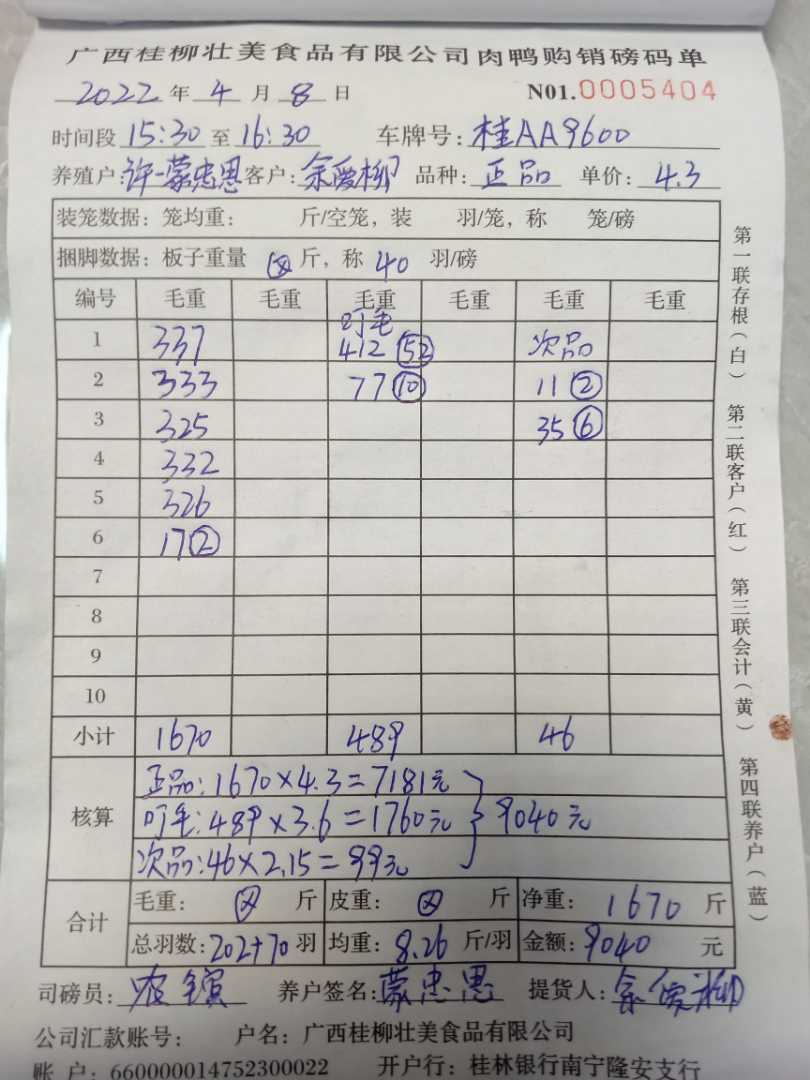 广西桂柳壮美食品有限公司肉鸭购销磅码单
2022 年 4 月 8 日 N01.0005404
时间段 15:30 至 16:30 车牌号: 桂AA9600
养殖户: 许-蒙忠恩 客户: 余爱柳 品种: 正品 单价: 4.3
装笼数据: 笼均重: 斤/空笼, 装 羽/笼, 称 笼/磅
捆脚数据: 板子重量 斤, 称 40 羽/磅
编号 毛重 毛重 毛重 毛重 毛重 毛重
叮毛
1 337 412 52 次品
2 333 77 10 11 2
3 325 35 6
4 332
5 326
6 17 2
7
8
9
10
小计 1670 489 46
核算
正品: 1670×4.3=7181元
叮毛: 489×3.6=1760元 9040元
次品: 46×2.15=99元
合计
毛重: 斤 皮重: 斤 净重: 1670 斤
总羽数: 202+70 羽 均重: 8.26 斤/羽 金额: 9040 元
司磅员: 农 养户签名: 蒙忠恩 提货人: 余爱柳
公司汇款账号: 户名: 广西桂柳壮美食品有限公司
账 户: 660000014752300022 开户行: 桂林银行南宁隆安支行
第一联存根(白) 第二联客户(红) 第三联会计(黄) 第四联养户(蓝)